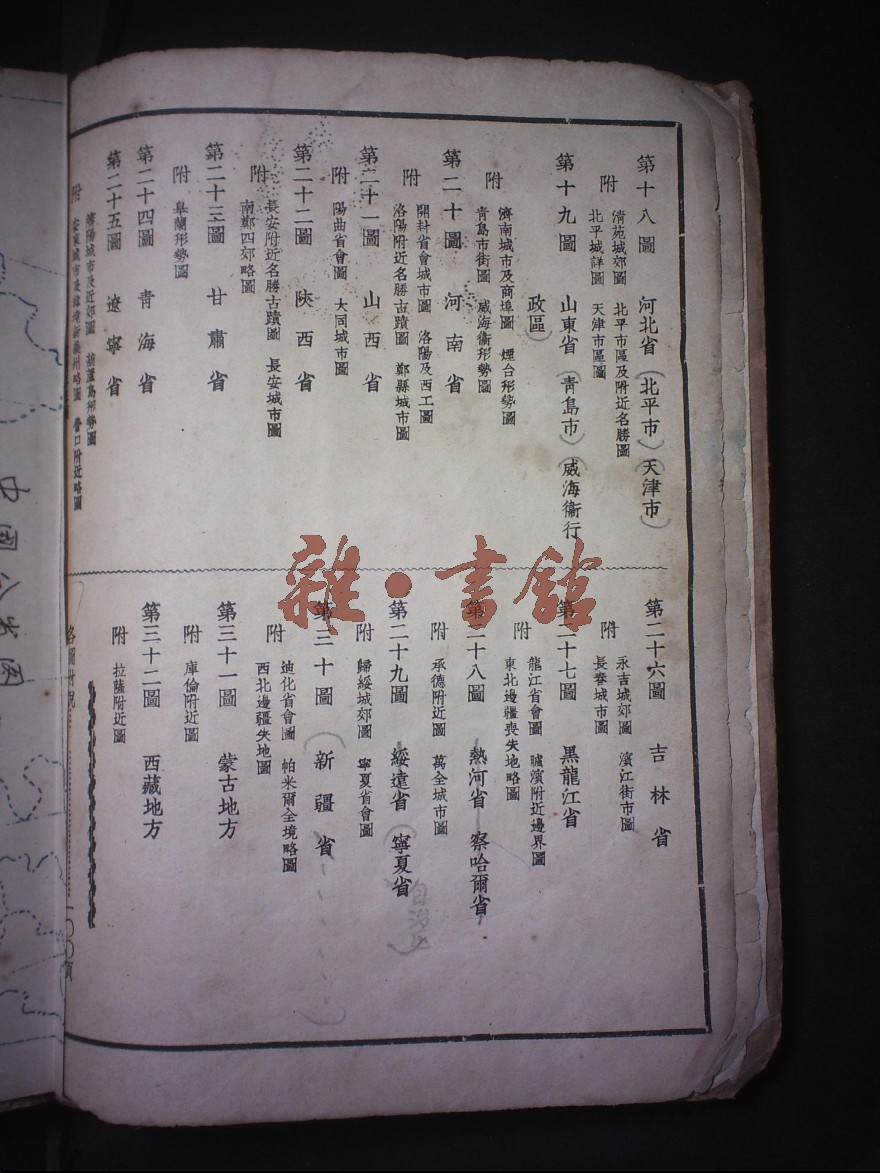 第十八圖 河北省(北平市)(天津市)
附 清苑城郊圖 北平市區及附近名勝圖
北平城詳圖 天津市區圖
第十九圖 山東省(青島市)(威海衞行
政區)
附 濟南城市及商埠圖 煙台形勢圖
青島市街圖 威海衞形勢圖
第二十圖 河南省
附 開封省會城市圖 洛陽及西工圖
洛陽附近名勝古蹟圖 鄭縣城市圖
第二十一圖 山西省
附 陽曲省會圖 大同城市圖
第二十二圖 陝西省
附 長安附近名勝古蹟圖 長安城市圖
南鄭四郊略圖
第二十三圖 甘肅省
附 皋蘭形勢圖
第二十四圖 青海省
第二十五圖 遼寧省
附 瀋陽城市及近郊圖 葫蘆島形勢圖
安東城市及韓境新義州略圖 營口附近略圖
第二十六圖 吉林省
附 永吉城郊圖 濱江街市圖
長春城市圖
第二十七圖 黑龍江省
附 龍江省會圖 臚濱附近邊界圖
東北邊疆喪失地略圖
第二十八圖 熱河省 察哈爾省
附 承德附近圖 萬全城市圖
第二十九圖 綏遠省(寧夏省
自治區)
附 歸綏城郊圖 寧夏省會圖
第三十圖 (新疆省
附 迪化省會圖 帕米爾全境略圖
西北邊疆失地圖
第三十一圖 蒙古地方
附 庫倫附近圖
第三十二圖 西藏地方
附 拉薩附近圖
各圖附說……一〇〇頁
中國公
雜·書館